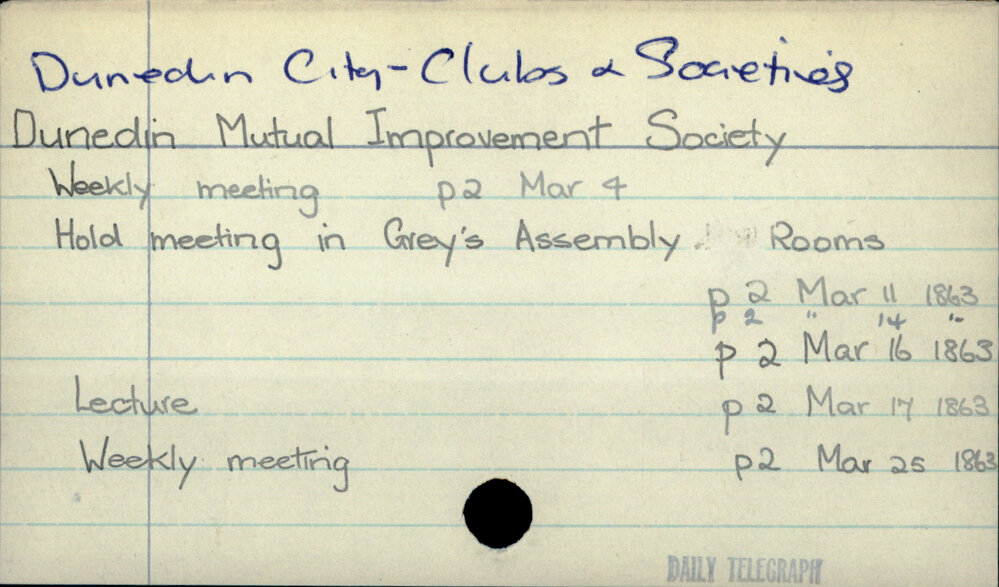 Dunedin City - Clubs & Societies
Dunedin Mutual Improvement Society
Weekly meeting p2 Mar 4
Hold meeting in Grey's Assembly Rooms
p 2 Mar 11 1863
p 2 " 14 "
p 2 Mar 16 1863
Lecture p 2 Mar 17 1863
Weekly meeting p2 Mar 25 1863
DAILY TELEGRAPH